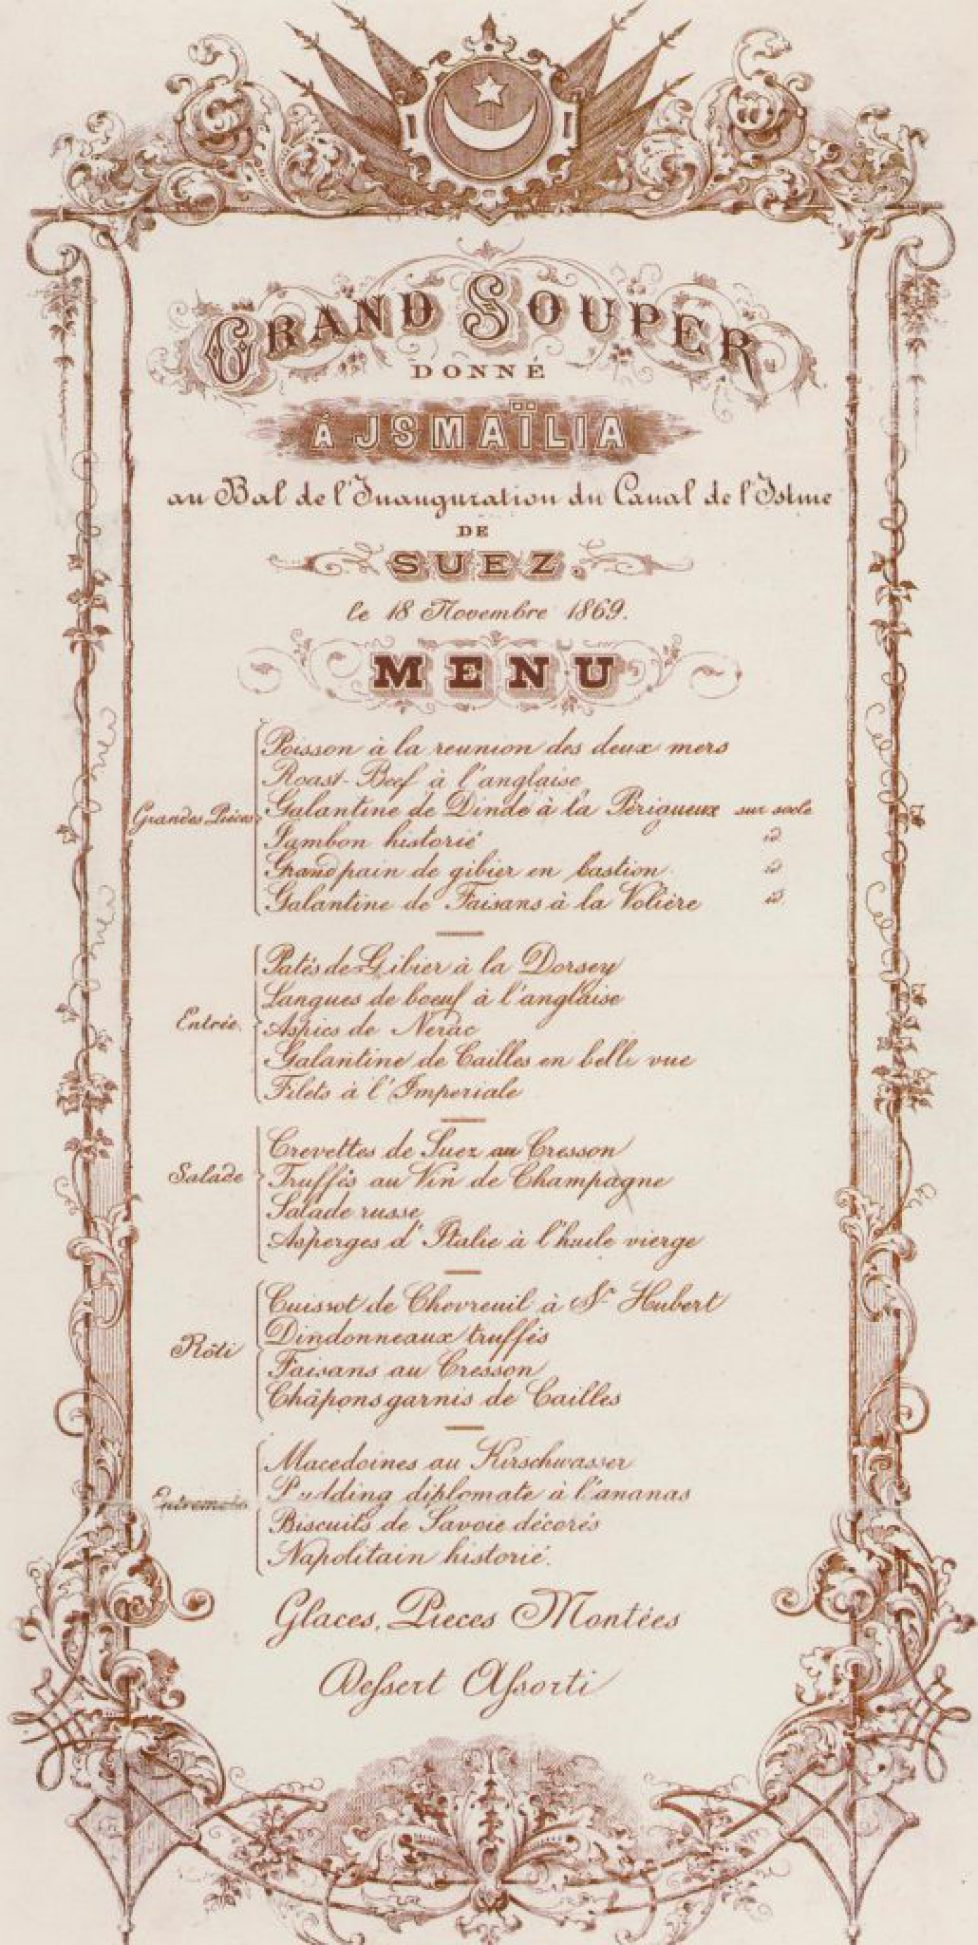 GRAND SOUPER
DONNÉ
Á JSMAÏLIA
au Bal de l'Inauguration du Canal de l'Istme
DE
SUEZ.
le 18 Novembre 1869.
MENU
Grandes Pièces
Poisson à la reunion des deux mers
Roast-Beef à l'anglaise
Galantine de Dinde à la Périgueux sur socle
Jambon historié id.
Grand pain de gibier en bastion id.
Galantine de Faisans à la Volière id.
Entrée
Patés de Gibier à la Dorsey
Langues de boeuf à l'anglaise
Aspics de Nerac
Galantine de Cailles en belle vue
Filets à l'Imperiale
Salade
Crevettes de Suez au Cresson
Truffes au Vin de Champagne
Salade russe
Asperges d'Italie à l'huile vierge
Rôti
Cuissot de Chevreuil à St Hubert
Dindonneaux truffés
Faisans au Cresson
Châpons garnis de Cailles
Entremets
Macedoines au Kirschwasser
Pudding diplomate à l'ananas
Biscuits de Savoie décorés
Napolitain historié.
Glaces, Pieces Montées
Dessert Assorti